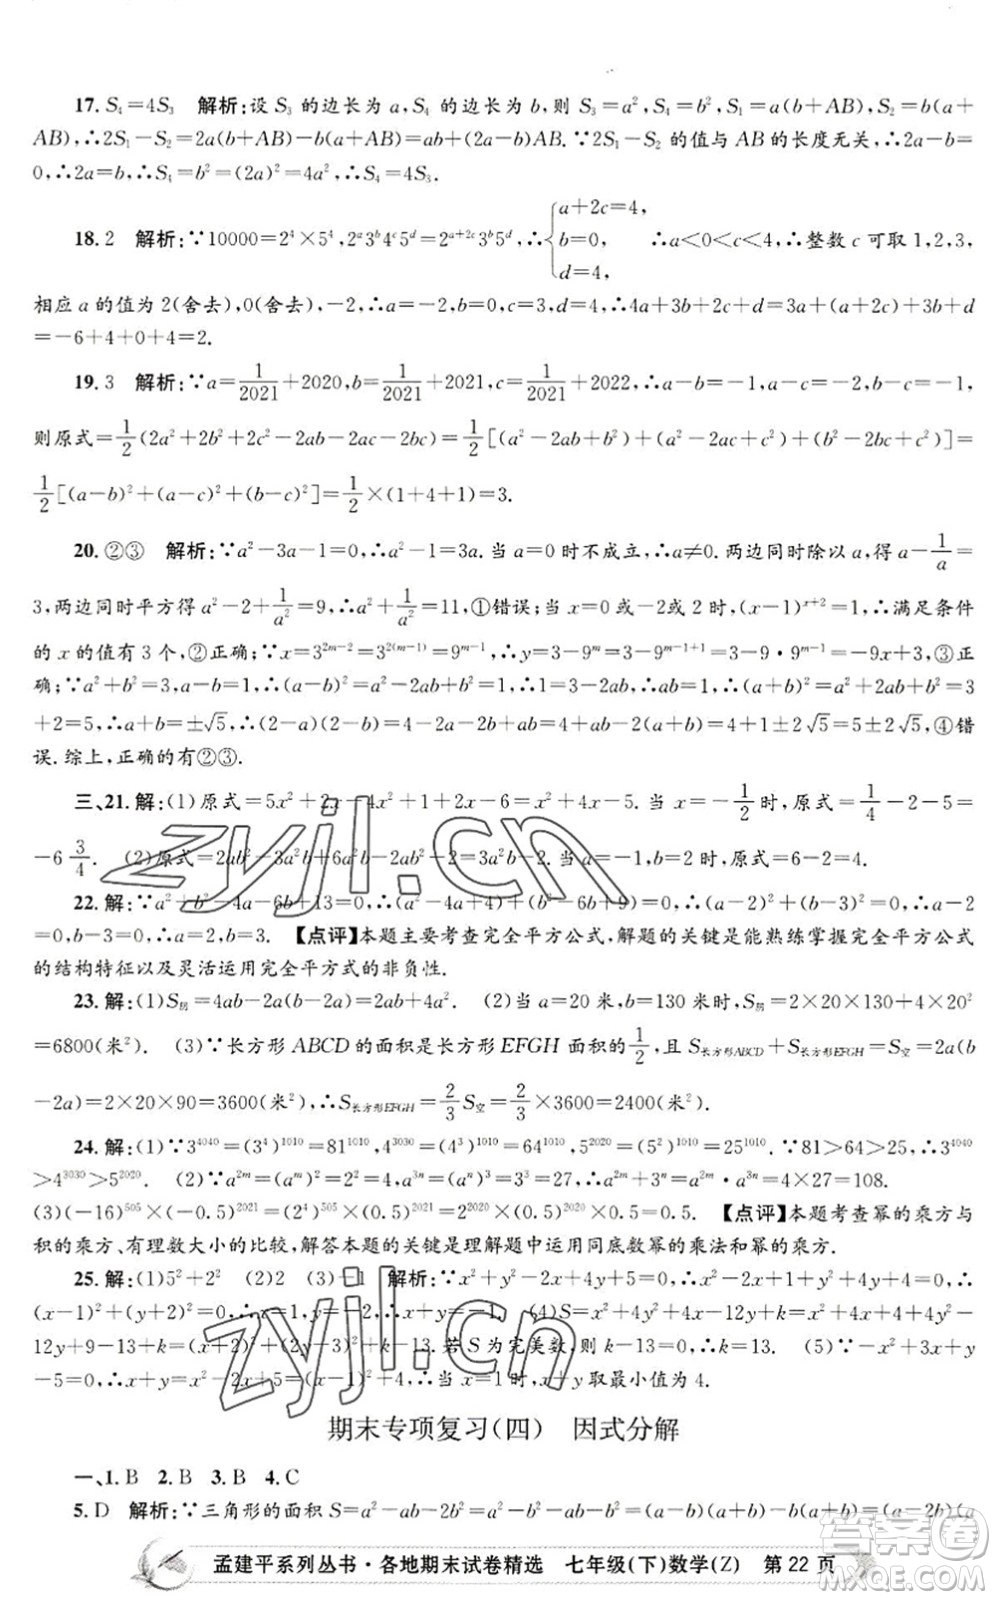 17. S₄=4S₃　解析:设 S₃ 的边长为 a,S₄ 的边长为 b,则 S₃=a²,S₄=b²,S₁=a(b+AB),S₂=b(a+
AB),∴2S₁-S₂=2a(b+AB)-b(a+AB)=ab+(2a-b)AB.∵2S₁-S₂ 的值与 AB 的长度无关,∴2a-b=
0,∴2a=b,∴S₄=b²=(2a)²=4a²,∴S₄=4S₃.
18. 2　解析:∵10000=2⁴×5⁴,2ᵃ3ᵇ4ᶜ5ᵈ=2ᵃ⁺²ᶜ3ᵇ5ᵈ,∴{a+2c=4, b=0, d=4,　∴a<0<c<4,∴整数 c 可取 1,2,3,
相应 a 的值为 2(舍去),0(舍去),-2,∴a=-2,b=0,c=3,d=4,∴4a+3b+2c+d=3a+(a+2c)+3b+d
=-6+4+0+4=2.
19. 3　解析:∵a=1/2021+2020,b=1/2021+2021,c=1/2021+2022,∴a-b=-1,a-c=-2,b-c=-1,
则原式=1/2(2a²+2b²+2c²-2ab-2ac-2bc)=1/2[(a²-2ab+b²)+(a²-2ac+c²)+(b²-2bc+c²)]=
1/2[(a-b)²+(a-c)²+(b-c)²]=1/2×(1+4+1)=3.
20. ②③　解析:∵a²-3a-1=0,∴a²-1=3a.当 a=0 时不成立,∴a≠0.两边同时除以 a,得 a-1/a=
3,两边同时平方得 a²-2+1/a²=9,∴a²+1/a²=11,①错误;当 x=0 或-2 或 2 时,(x-1)ˣ⁺²=1,∴满足条件
的 x 的值有 3 个,②正确;∵x=3²ᵐ⁻²=3²⁽ᵐ⁻¹⁾=9ᵐ⁻¹,∴y=3-9ᵐ=3-9ᵐ⁻¹⁺¹=3-9·9ᵐ⁻¹=-9x+3,③正
确;∵a²+b²=3,a-b=1,∴(a-b)²=a²-2ab+b²,∴1=3-2ab,∴ab=1,∴(a+b)²=a²+b²+2ab=3
+2=5,∴a+b=±√5,∴(2-a)(2-b)=4-2a-2b+ab=4-2(a+b)+ab=4+1±2√5=5±2√5,④错
误.综上,正确的有②③.
三、21. 解:(1)原式=5x²+2x-4x²+1+2x-6=x²+4x-5.当 x=-1/2时,原式=1/4-2-5=
-6 3/4.　(2)原式=2ab²-3a²b+6a²b-2ab²=3a²b-2.当 a=-1,b=2 时,原式=6-2=4.
22. 解:∵a²+b²-4a-6b+13=0,∴(a²-4a+4)+(b²-6b+9)=0,∴(a-2)²+(b-3)²=0,∴a-2
=0,b-3=0,∴a=2,b=3.　【点评】本题主要考查完全平方公式,解题的关键是能熟练掌握完全平方公式
的结构特征以及灵活运用完全平方式的非负性.
23. 解:(1)S阴=4ab-2a(b-2a)=2ab+4a².　(2)当 a=20 米,b=130 米时,S阴=2×20×130+4×20²
=6800(米²).　(3)∵长方形 ABCD 的面积是长方形 EFGH 面积的1/2,且 S长方形ABCD+S长方形EFGH=S空=2a(b
-2a)=2×20×90=3600(米²),∴S长方形EFGH=2/3S空=2/3×3600=2400(米²).
24. 解:(1)∵3⁴⁰⁴⁰=(3⁴)¹⁰¹⁰=81¹⁰¹⁰,4³⁰³⁰=(4³)¹⁰¹⁰=64¹⁰¹⁰,5²⁰²⁰=(5²)¹⁰¹⁰=25¹⁰¹⁰.∵81>64>25,∴3⁴⁰⁴⁰
>4³⁰³⁰>5²⁰²⁰.　(2)∵a²ᵐ=(aᵐ)²=2²=4,a³ⁿ=(aⁿ)³=3³=27,∴a²ᵐ⁺³ⁿ=a²ᵐ·a³ⁿ=4×27=108.
(3)(-16)⁵⁰⁵×(-0.5)²⁰²¹=(2⁴)⁵⁰⁵×(0.5)²⁰²¹=2²⁰²⁰×(0.5)²⁰²⁰×0.5=0.5.　【点评】本题考查幂的乘方与
积的乘方、有理数大小的比较,解答本题的关键是理解题中运用同底数幂的乘法和幂的乘方.
25. 解:(1)5²+2²　(2)2　(3)-1　解析:∵x²+y²-2x+4y+5=0,∴x²-2x+1+(y²+4y+4)=0,∴
(x-1)²+(y+2)²=0,∴x=1,y=-2,∴x+y=-1.　(4)S=x²+4y²+4x-12y+k=x²+4x+4+4y²-
12y+9-13+k=(x+2)²+(2y-3)²+k-13.若 S 为完美数,则 k-13=0,∴k=13.　(5)∵-x²+3x+
y-5=0,∴x+y=x²-2x+5=(x-1)²+4,∴当 x=1 时,x+y 取最小值为 4.
期末专项复习(四)　因式分解
一、1. B　2. B　3. B　4. C
5. D　解析:∵三角形的面积 S=a²-ab-2b²=a²-b²-ab-b²=(a-b)(a+b)-b(a+b)=(a-2b)(a
孟建平系列丛书·各地期末试卷精选　七年级(下)数学(Z)　第 22 页
zyjl.cn
zyjl.cn
答案圈
MXQE.COM